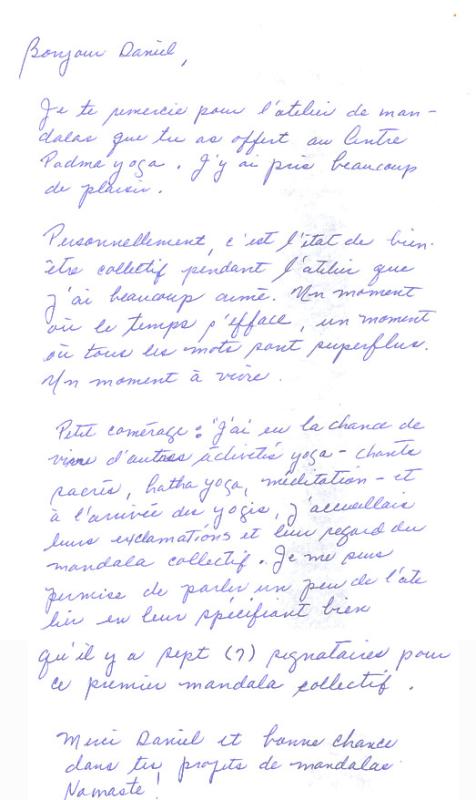 Bonjour Daniel,
Je te remercie pour l'atelier de man-
dalas que tu as offert au Centre
Padma yoga. J'y ai pris beaucoup
de plaisir.
Personnellement, c'est l'état de bien-
être collectif pendant l'atelier que
j'ai beaucoup aimé. Un moment
où le temps s'efface, un moment
où tous les mots sont superflus.
Un moment à vivre.
Petit comérage : "J'ai eu la chance de
vivre d'autres activités yoga - chants
sacrés, hatha yoga, méditation - et
à l'arrivée des yogis, j'accueillais
leurs exclamations et leur regard du
mandala collectif. Je me suis
permise de parler un peu de l'ate
lier en leur spécifiant bien
qu'il y a sept (7) signataires pour
ce premier mandala collectif.
Merci Daniel et bonne chance
dans tes projets de mandalas
Namaste!